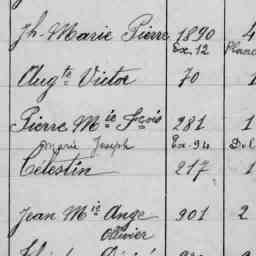 Jh. Marie Pierre 1890 4
Ex. 12
Augte Victor 70 1
Pierre Mie Fçois 281 1
Marie Joseph Ex. 94
Célestin 217 1
Jean Mie Ange 901 2
Ollivier